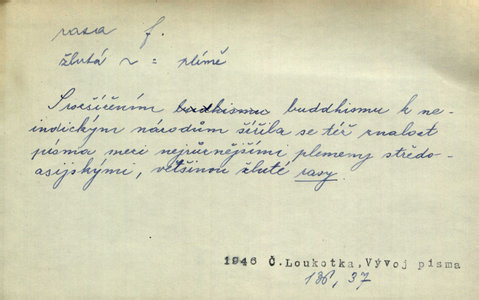 rasa f.
žlutá ~ = plémě
S rozšířením buddhismu buddhismu k ne-
indickým národům šířila se též znalost
písma mezi nejrůznějšími plemeny středo-
asijskými, většinou žluté rasy.
1946 Č.Loukotka,Vývoj písma
186, 37